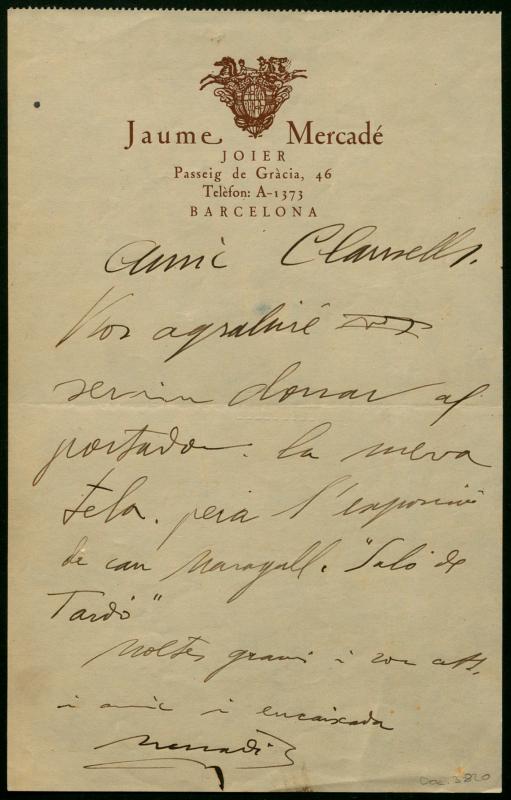 Jaume Mercadé
JOIER
Passeig de Gràcia, 46
Telèfon: A-1373
BARCELONA
Amic Clausells.
Vos agrahiré
donar al
portador. la meva
tela. per a l'exposició
de can Maragall. "Saló de
Tardó"
Moltes gracis i son att.
i amic i encaixada
Mercadé
Doc. 3820